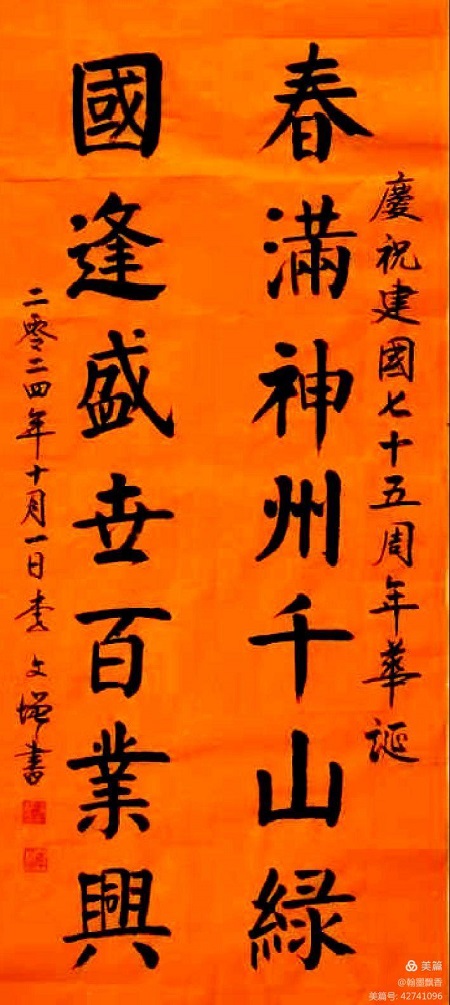 慶祝建國七十五周年華誕
春滿神州千山緑
國逢盛世百業興
二零二四年十月一日李文增書
美篇
@翰墨飘香
美篇号: 42741096